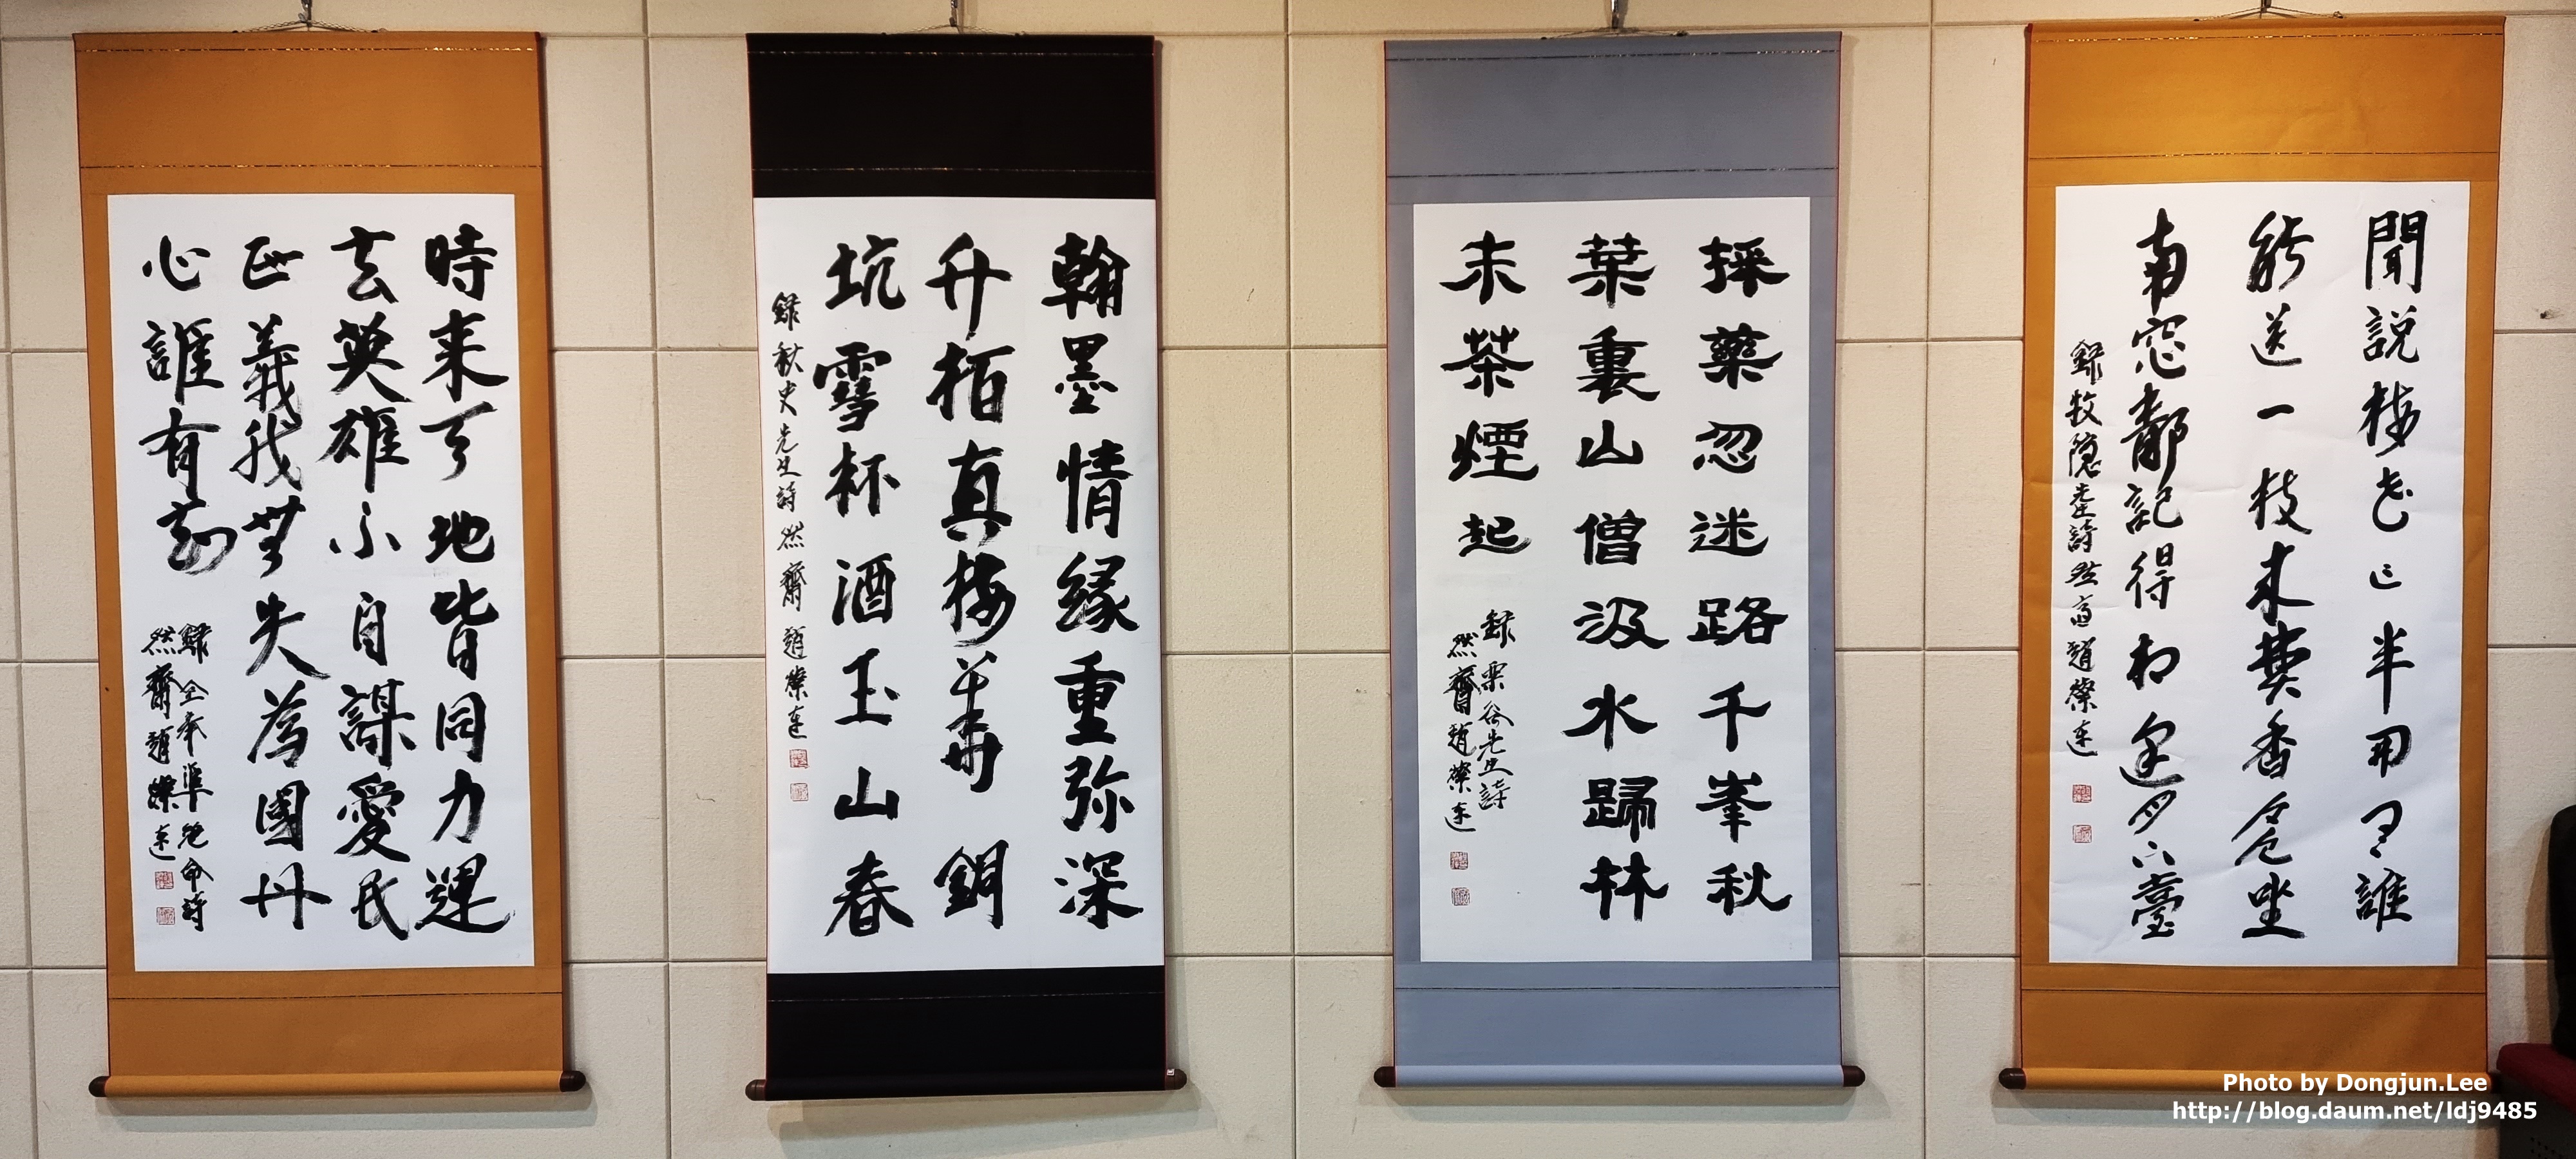 聞說梅花已半開有誰
能送一枝來焚香危坐
南窓靜記得相逢月下臺
録牧隱先生詩然齋趙連
採藥忽迷路千峯秋
葉裏山僧汲水歸林
末茶煙起
録栗谷先生詩
然齋趙連
翰墨情緣重弥深
竹栢真梅華銅
坑雪杯酒玉山春
録秋史先生詩然齋趙連
時來天地皆同力運
去英雄不自謀愛民
正義我無失為國丹
心誰有知
録全奉準絶命詩
然齋趙連
Photo by Dongjun.Lee
http://blog.daum.net/ldj9485